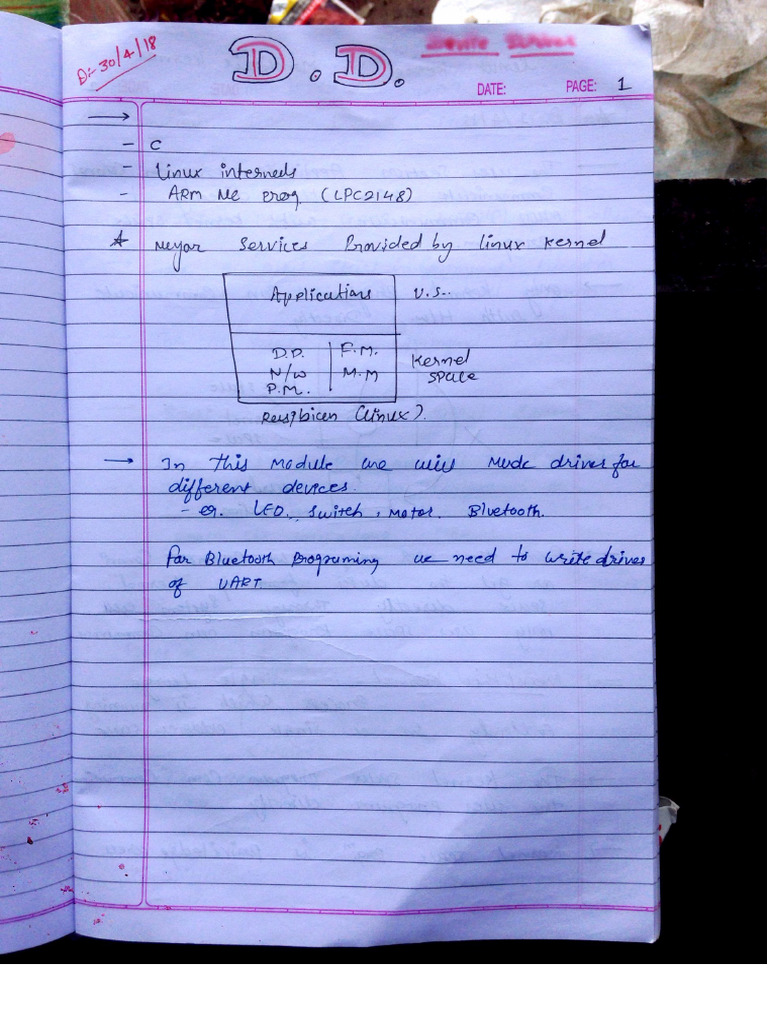 D:- 30/4/18
D.D.
DATE: PAGE: 1
→
- C
- Linux internels
- ARM Mc prog (LPC2148)
* Meyor Services Provided by linux kernel
Applications U.S..
D.D. F.M. Kernel
N/W M.M space
P.M.
(linux).
→ In this module we will drives for
different devices.
- eg. LED, switch, Motor. Bluetooth.
For Bluetooth Programing we need to write drives
of UART.